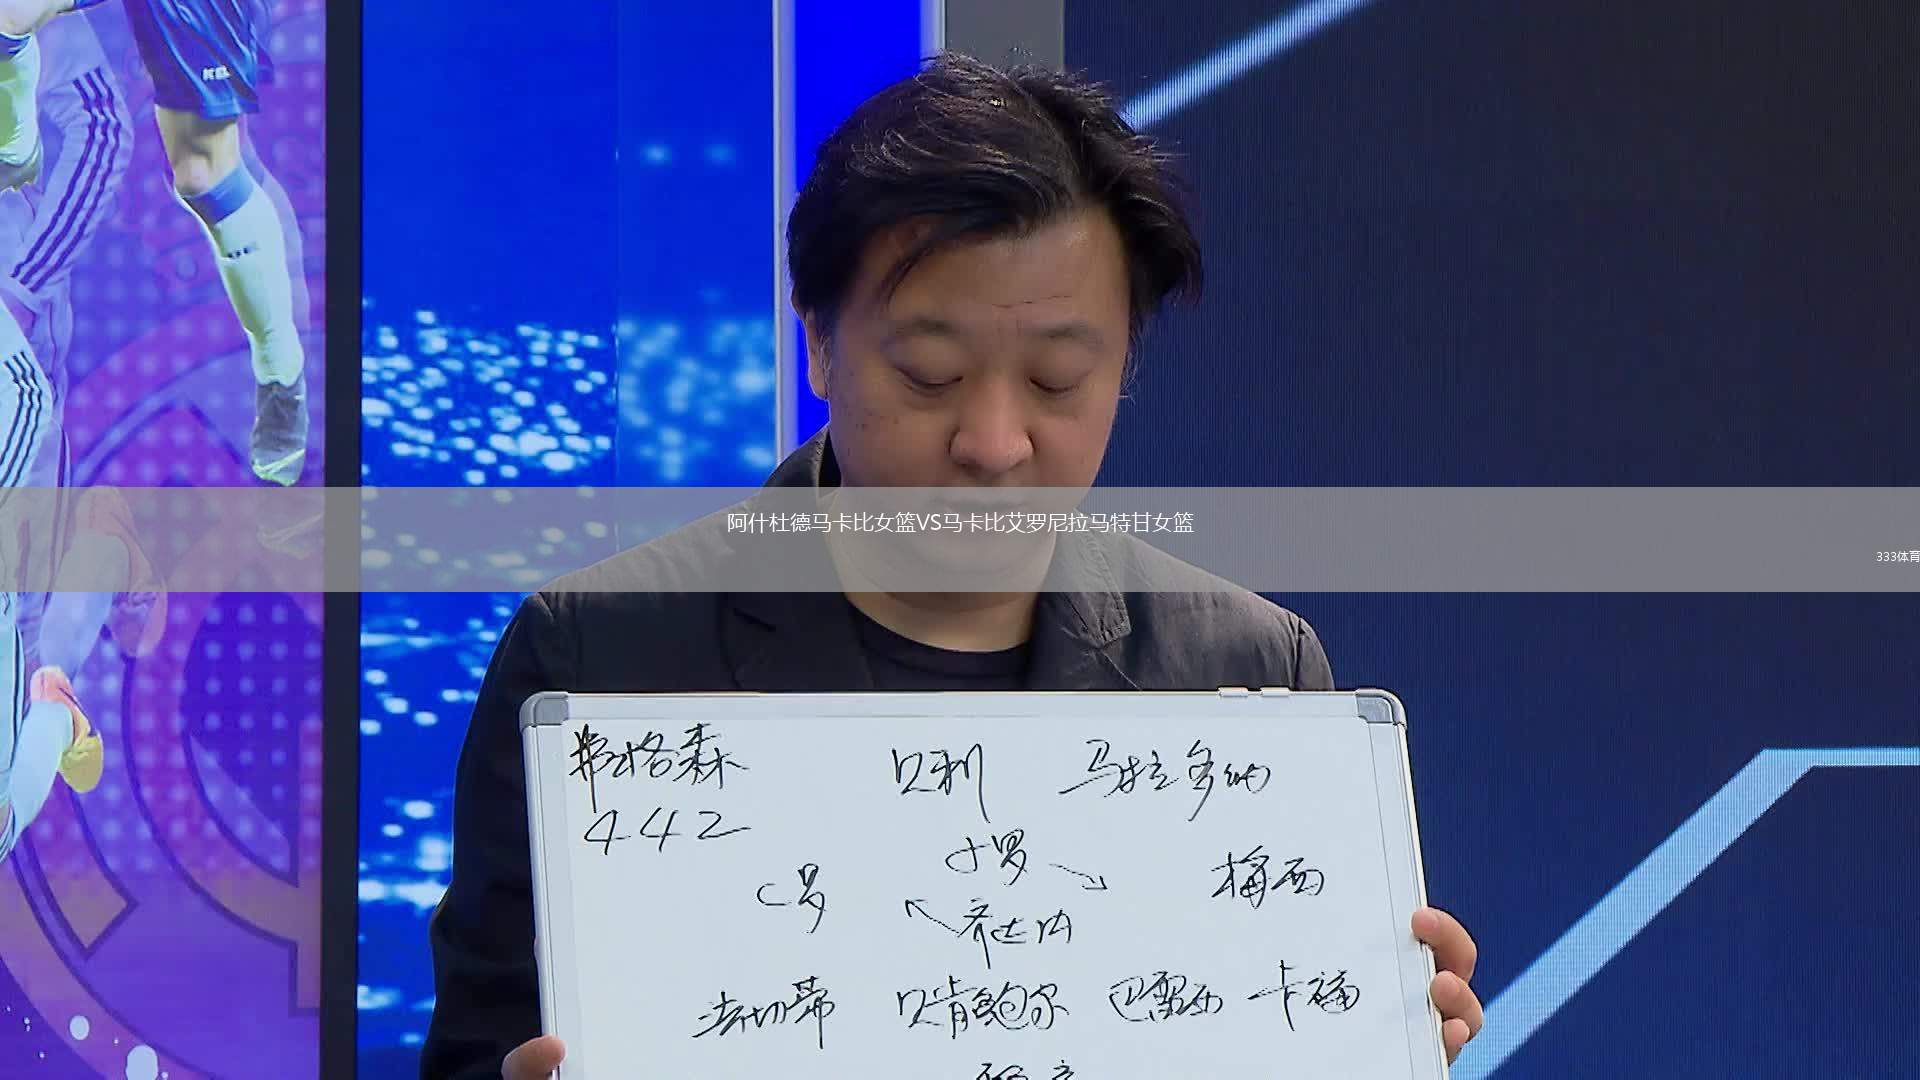 阿什杜德马卡比女篮VS马卡比艾罗尼拉马特甘女篮
333体育
弗格森 贝利 马拉多纳
442
小罗
C罗 梅西
齐达内
法切蒂 贝肯鲍尔 巴雷西 卡福